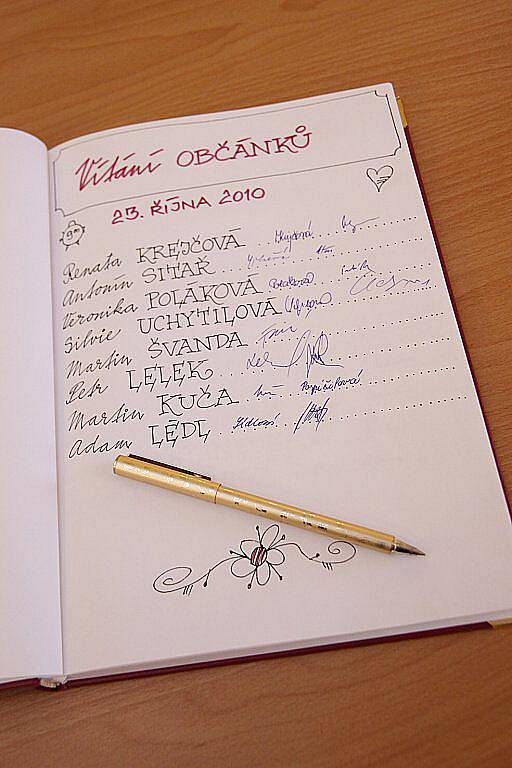 Vítání OBČÁNKŮ
23. ŘÍJNA 2010
Renata KREJČOVÁ
Antonín SITAŘ
Veronika POLÁKOVÁ
Silvie UCHYTILOVÁ
Martin ŠVANDA
Petr LELEK
Martin KUČA
Adam LÉDL